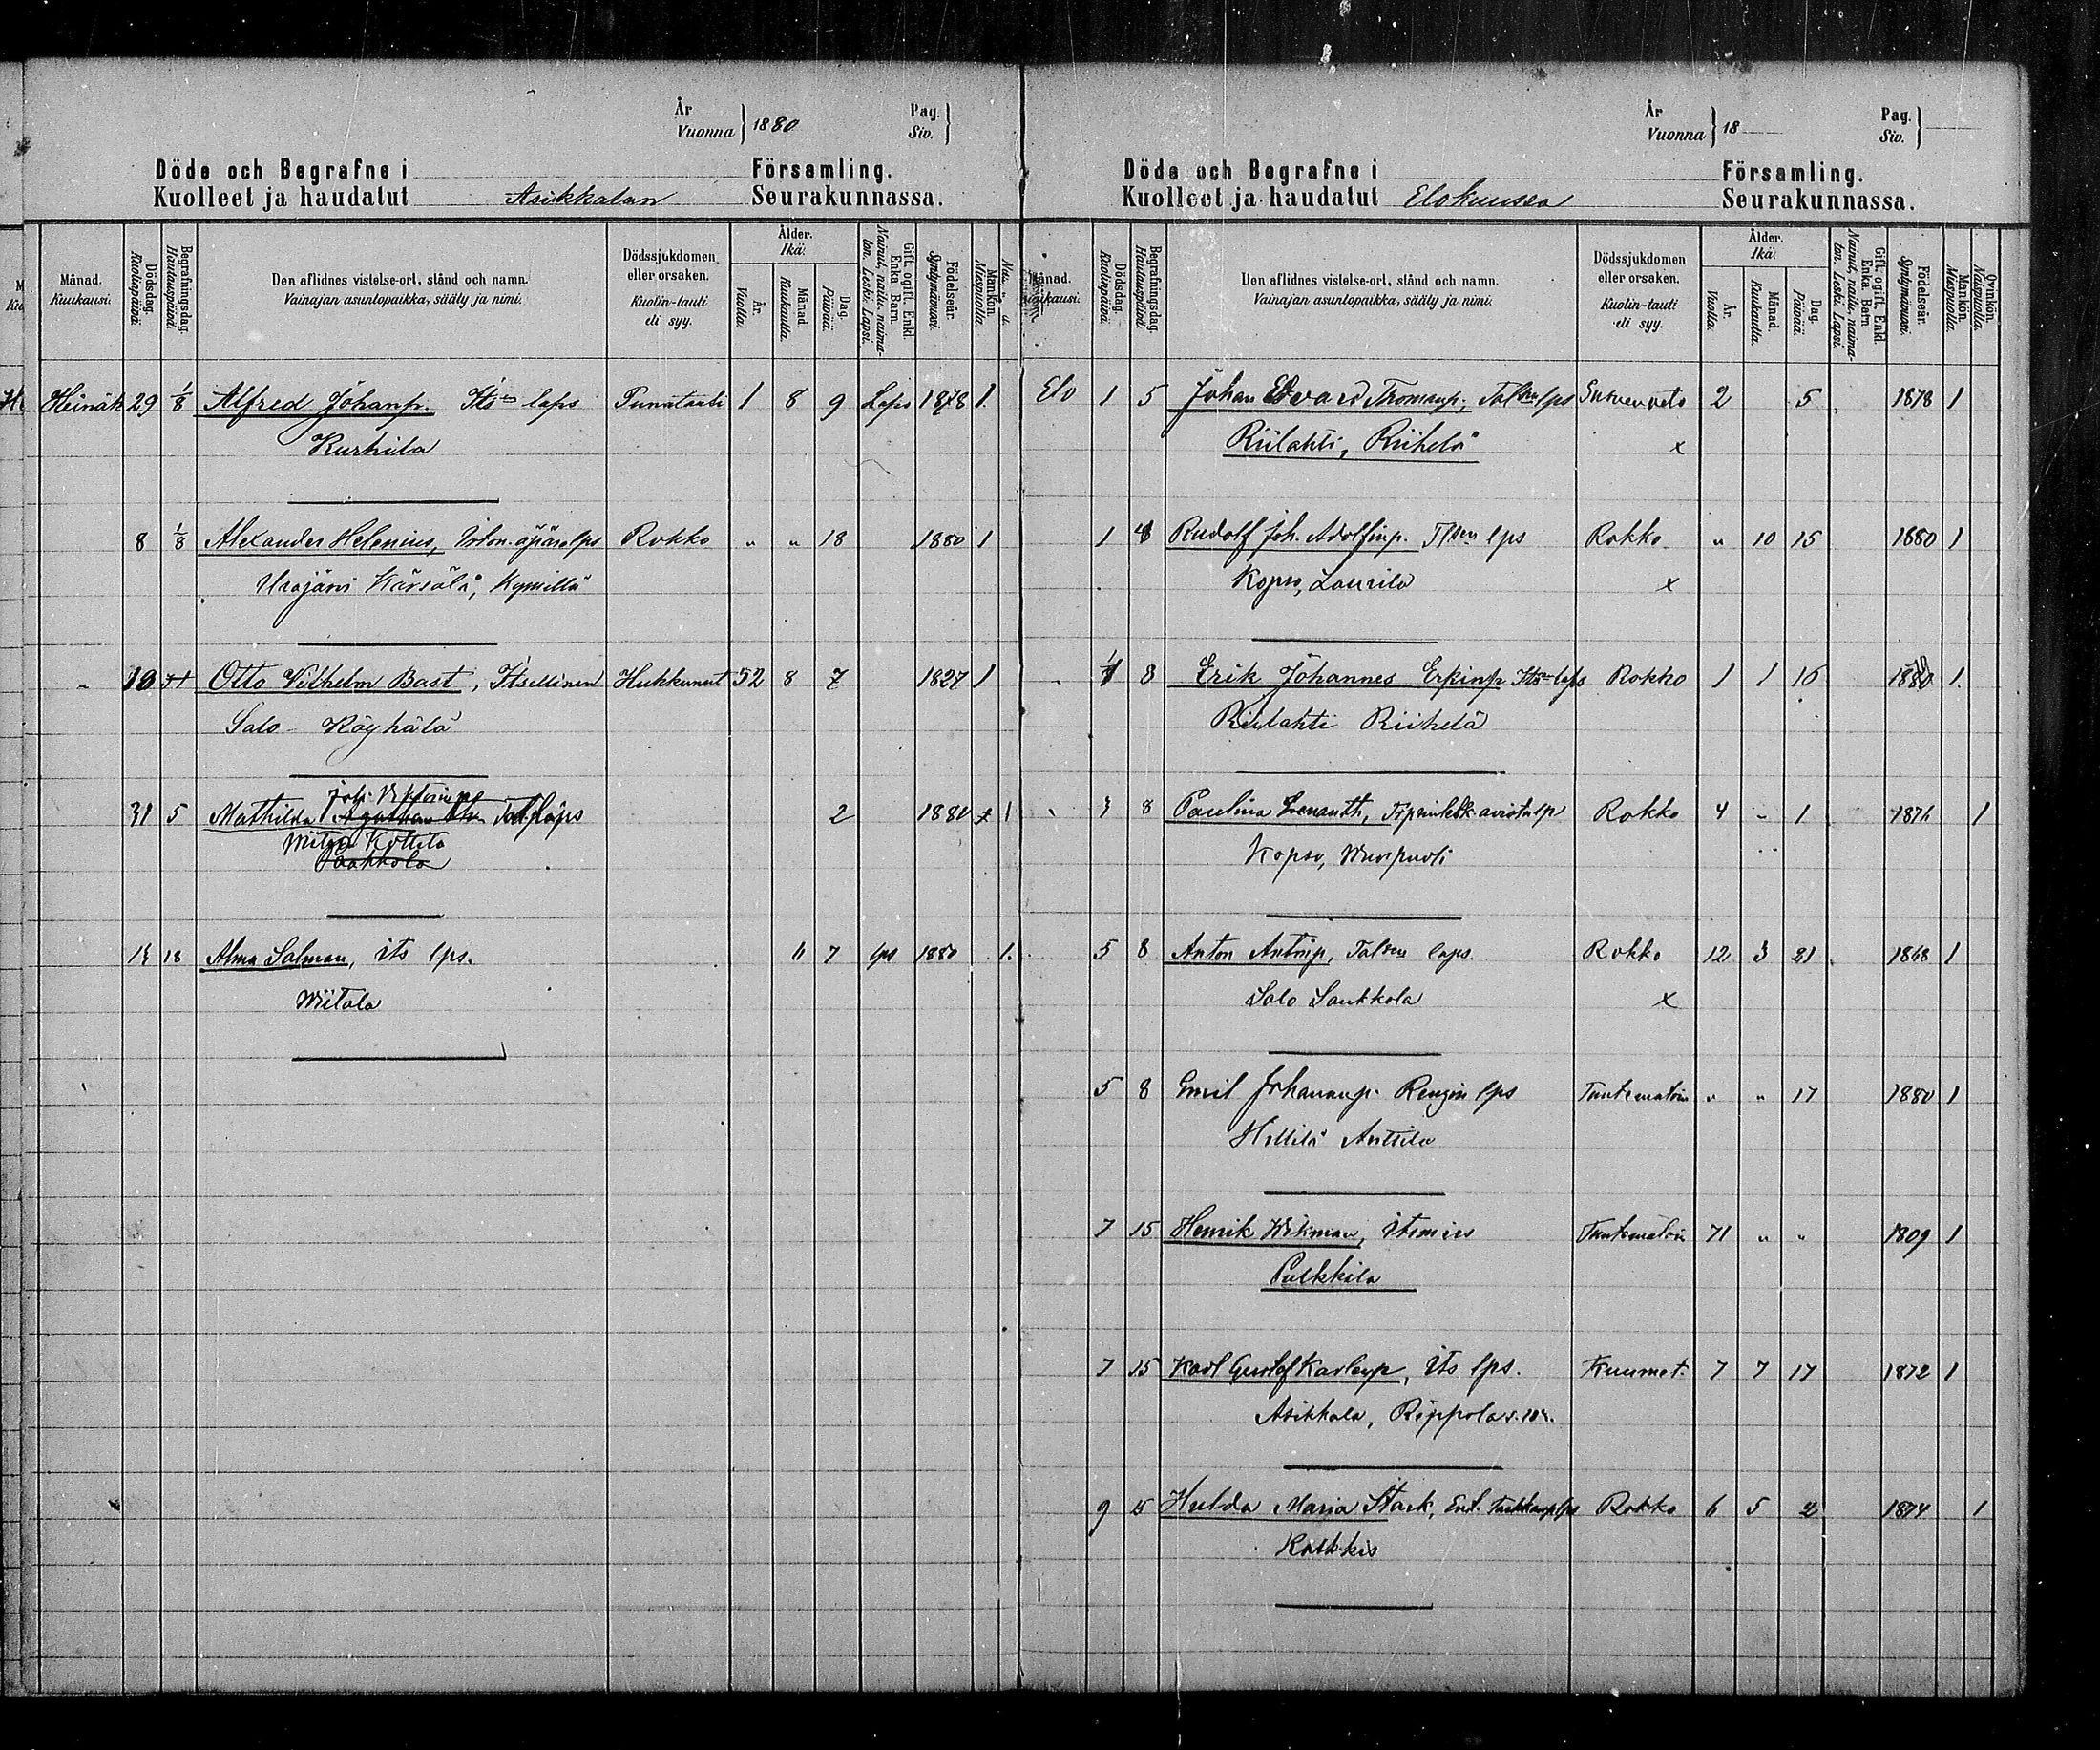 År
Vuonna } 1880
Pag.
Siv. }
Döde och Begrafne i Församling.
Kuolleet ja haudatut Asikkalan Seurakunnassa.
Månad. Kuukausi.
Dödsdag. Kuolinpäivä
Begrafningsdag. Hautauspäivä.
Den aflidnes vistelse-ort, stånd och namn.
Vainajan asuntopaikka, sääty ja nimi.
Dödssjukdomen eller orsaken.
Kuolin-tauti eli syy.
Ålder. Ikä.
År. Vuotta.
Månad. Kuukautta.
Dag. Päivää.
Gift, ogift. Enkl. Enka. Barn.
Nainut, naitu, naimaton. Leski. Lapsi.
Födelseår. Syntymävuosi.
Mankön. Miespuolia.
Heinäk 29 1/8 Alfred Johanp. Its laps 1 8 9 Laps 1878 1.
Kurhila
8 1/8 Alexander Helenius, lps Rokko " " 18 1880 1
Urajärvi Kärsälä,
Otto Vilhelm Bast, Itsellinen Hukkunut 52 8 7 1827 1
Salo Röyhälä
31 5 Mathilda laps 2 1880 1
18 Alma Salman, its lps. 7 lps 1880 1.
Wiitala
År
Vuonna } 18
Pag.
Siv. }
Döde och Begrafne i Församling.
Kuolleet ja haudatut Elokuussa Seurakunnassa.
Månad. Kuukausi.
Dödsdag. Kuolinpäivä
Begrafningsdag. Hautauspäivä.
Den aflidnes vistelse-ort, stånd och namn.
Vainajan asuntopaikka, sääty ja nimi.
Dödssjukdomen eller orsaken.
Kuolin-tauti eli syy.
Ålder. Ikä.
År. Vuotta.
Månad. Kuukautta.
Dag. Päivää.
Gift, ogift. Enkl. Enka. Barn
Nainut, naitu, naimaton. Leski. Lapsi.
Födelseår. Syntymävuosi.
Mankön. Miespuolia.
Qvinkön. Naispuolia.
Elo 1 5 Johan Edvard lps 2 5 1878 1
Riilahti, Riihelä x
1 8 Rudolf Joh. Adolfinp. lps Rokko " 10 15 1880 1
Kopso, Laurila x
8 Erik Johannes Erkinp Its laps Rokko 1 1 16 1.
Riilahti Riihelä
8 Paulina Rokko 4 " 1 1876 1
Kopso,
5 8 Anton Antinp, Tal laps. Rokko 12 3 21 1868 1
Salo Saukkola x
5 8 Emil Johananp. Rengin lps Tuntematoin " " 17 1880 1
Hillilä Anttila
7 15 Henrik Wikman, itsmies Tuntematoin 71 " " 1809 1
Pulkkila
7 15 Karl Gustaf Karlenp, its lps. Kuumet. 7 7 17 1872 1
Asikkala, Rippola
9 15 Hulda Maria Stark, lps Rokko 6 5 2 1874 1